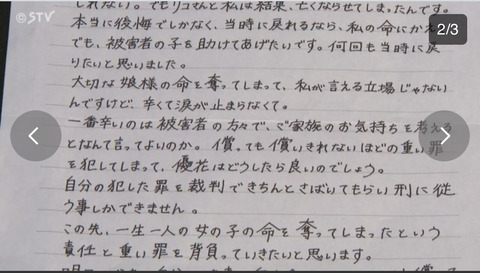 ©STV
しれない。でもリコさんと私は結果、亡くならせてしまったんです。
本当に後悔でしかなく、当時に戻れるなら、私の命にかえ
でも、被害者の子を助けてあげたいです。何回も当時に戻
りたいと思いました。
大切な娘様の命を奪ってしまって、私が言える立場じゃない
んですけど、辛くて涙が止まらなくて。
一番辛いのは被害者の方々で、ご家族のお気持ちを考える
となんて言ってよいのか。償っても償いきれないほどの重い罪
を犯してしまって、優花はどうしたら良いのでしょう。
自分の犯した罪を裁判できちんとさばいてもらい刑に従
う事しかできません。
この先、一生一人の女の子の命を奪ってしまったという
責任と重い罪を背負っていきたいと思います。
2/3